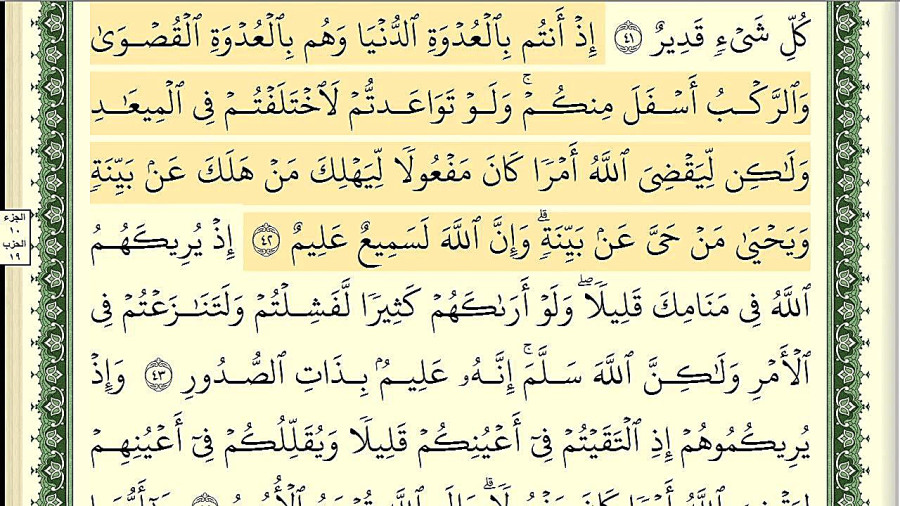 كُلِّ شَىْءٍ قَدِيرٌ ٤١ إِذْ أَنتُم بِٱلْعُدْوَةِ ٱلدُّنْيَا وَهُم بِٱلْعُدْوَةِ ٱلْقُصْوَىٰ
وَٱلرَّكْبُ أَسْفَلَ مِنكُمْ ۚ وَلَوْ تَوَاعَدتُّمْ لَٱخْتَلَفْتُمْ فِى ٱلْمِيعَـٰدِ
وَلَـٰكِن لِّيَقْضِىَ ٱللَّهُ أَمْرًا كَانَ مَفْعُولًا لِّيَهْلِكَ مَنْ هَلَكَ عَنۢ بَيِّنَةٍ
وَيَحْيَىٰ مَنْ حَىَّ عَنۢ بَيِّنَةٍ ۗ وَإِنَّ ٱللَّهَ لَسَمِيعٌ عَلِيمٌ ٤٢ إِذْ يُرِيكَهُمُ
ٱللَّهُ فِى مَنَامِكَ قَلِيلًا ۖ وَلَوْ أَرَىٰكَهُمْ كَثِيرًا لَّفَشِلْتُمْ وَلَتَنَـٰزَعْتُمْ فِى
ٱلْأَمْرِ وَلَـٰكِنَّ ٱللَّهَ سَلَّمَ ۚ إِنَّهُۥ عَلِيمٌۢ بِذَاتِ ٱلصُّدُورِ ٤٣ وَإِذْ
يُرِيكُمُوهُمْ إِذِ ٱلْتَقَيْتُمْ فِىٓ أَعْيُنِكُمْ قَلِيلًا وَيُقَلِّلُكُمْ فِىٓ أَعْيُنِهِمْ
الجزء
١٠
الحزب
١٩